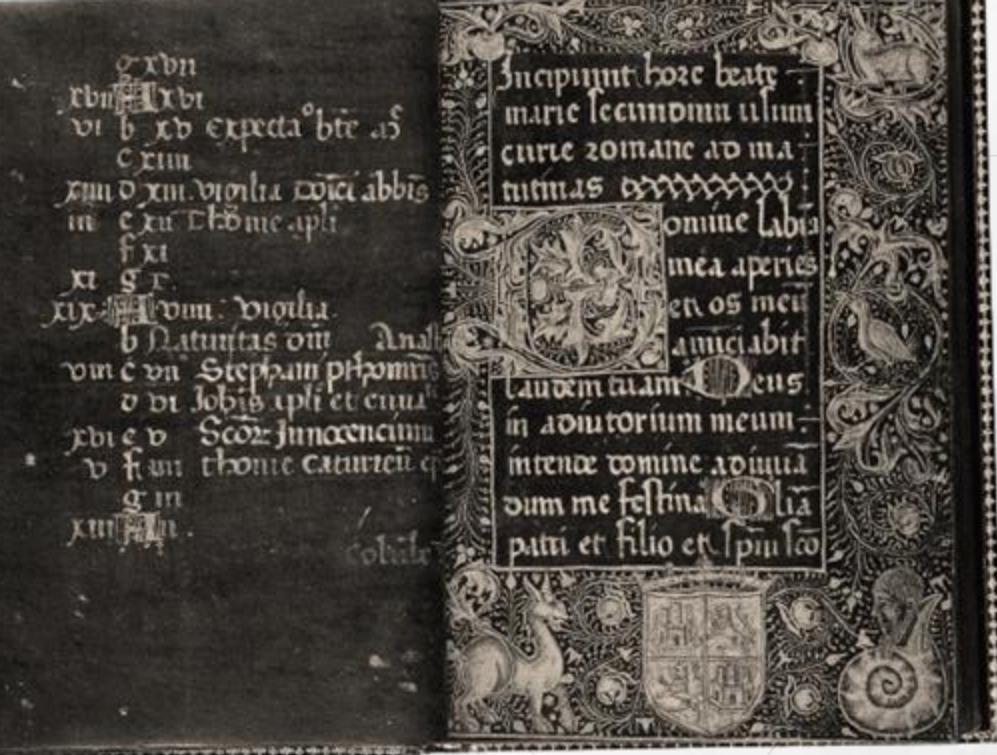 g xvii
xvii A xvi
vi b xv Expectaº bt̄e
c xiiii
xiiii d xiii vigilia abb̄is
iii e xii Thome apl̄i
f xi
xi g x.
xix A viiii. vigilia.
b Natiuitas dn̄i
viii c vii Stephani
d vi Joh̄is apl̄i et
xvi e v Innocencium
v f iiii thome
g iii
xiii A ii.
Incipiunt hore beate
marie secundum usum
curie romane ad ma
tutinas
Domine labia
mea aperies
et os meū
amiciabit
laudem tuam Deus
in adiutorium meum
intende domine ad iuuā
dum me festina Gl̄ia
patri et filio et sp̄iu sc̄o